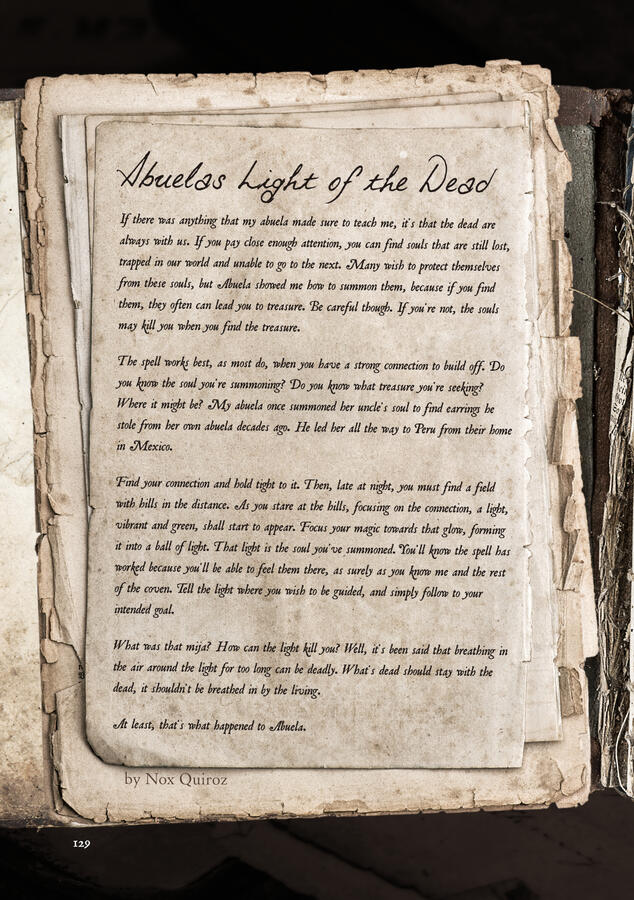 Abuelas Light of the Dead
If there was anything that my abuela made sure to teach me, it's that the dead are
always with us. If you pay close enough attention, you can find souls that are still lost,
trapped in our world and unable to go to the next. Many wish to protect themselves
from these souls, but Abuela showed me how to summon them, because if you find
them, they often can lead you to treasure. Be careful though. If you're not, the souls
may kill you when you find the treasure.
The spell works best, as most do, when you have a strong connection to build off. Do
you know the soul you're summoning? Do you know what treasure you're seeking?
Where it might be? My abuela once summoned her uncle's soul to find earrings he
stole from her own abuela decades ago. He led her all the way to Peru from their home
in Mexico.
Find your connection and hold tight to it. Then, late at night, you must find a field
with hills in the distance. As you stare at the hills, focusing on the connection, a light,
vibrant and green, shall start to appear. Focus your magic towards that glow, forming
it into a ball of light. That light is the soul you've summoned. You'll know the spell has
worked because you'll be able to feel them there, as surely as you know me and the rest
of the coven. Tell the light where you wish to be guided, and simply follow to your
intended goal.
What was that mija? How can the light kill you? Well, it's been said that breathing in
the air around the light for too long can be deadly. What's dead should stay with the
dead, it shouldn't be breathed in by the living.
At least, that's what happened to Abuela.
by Nox Quiroz
129